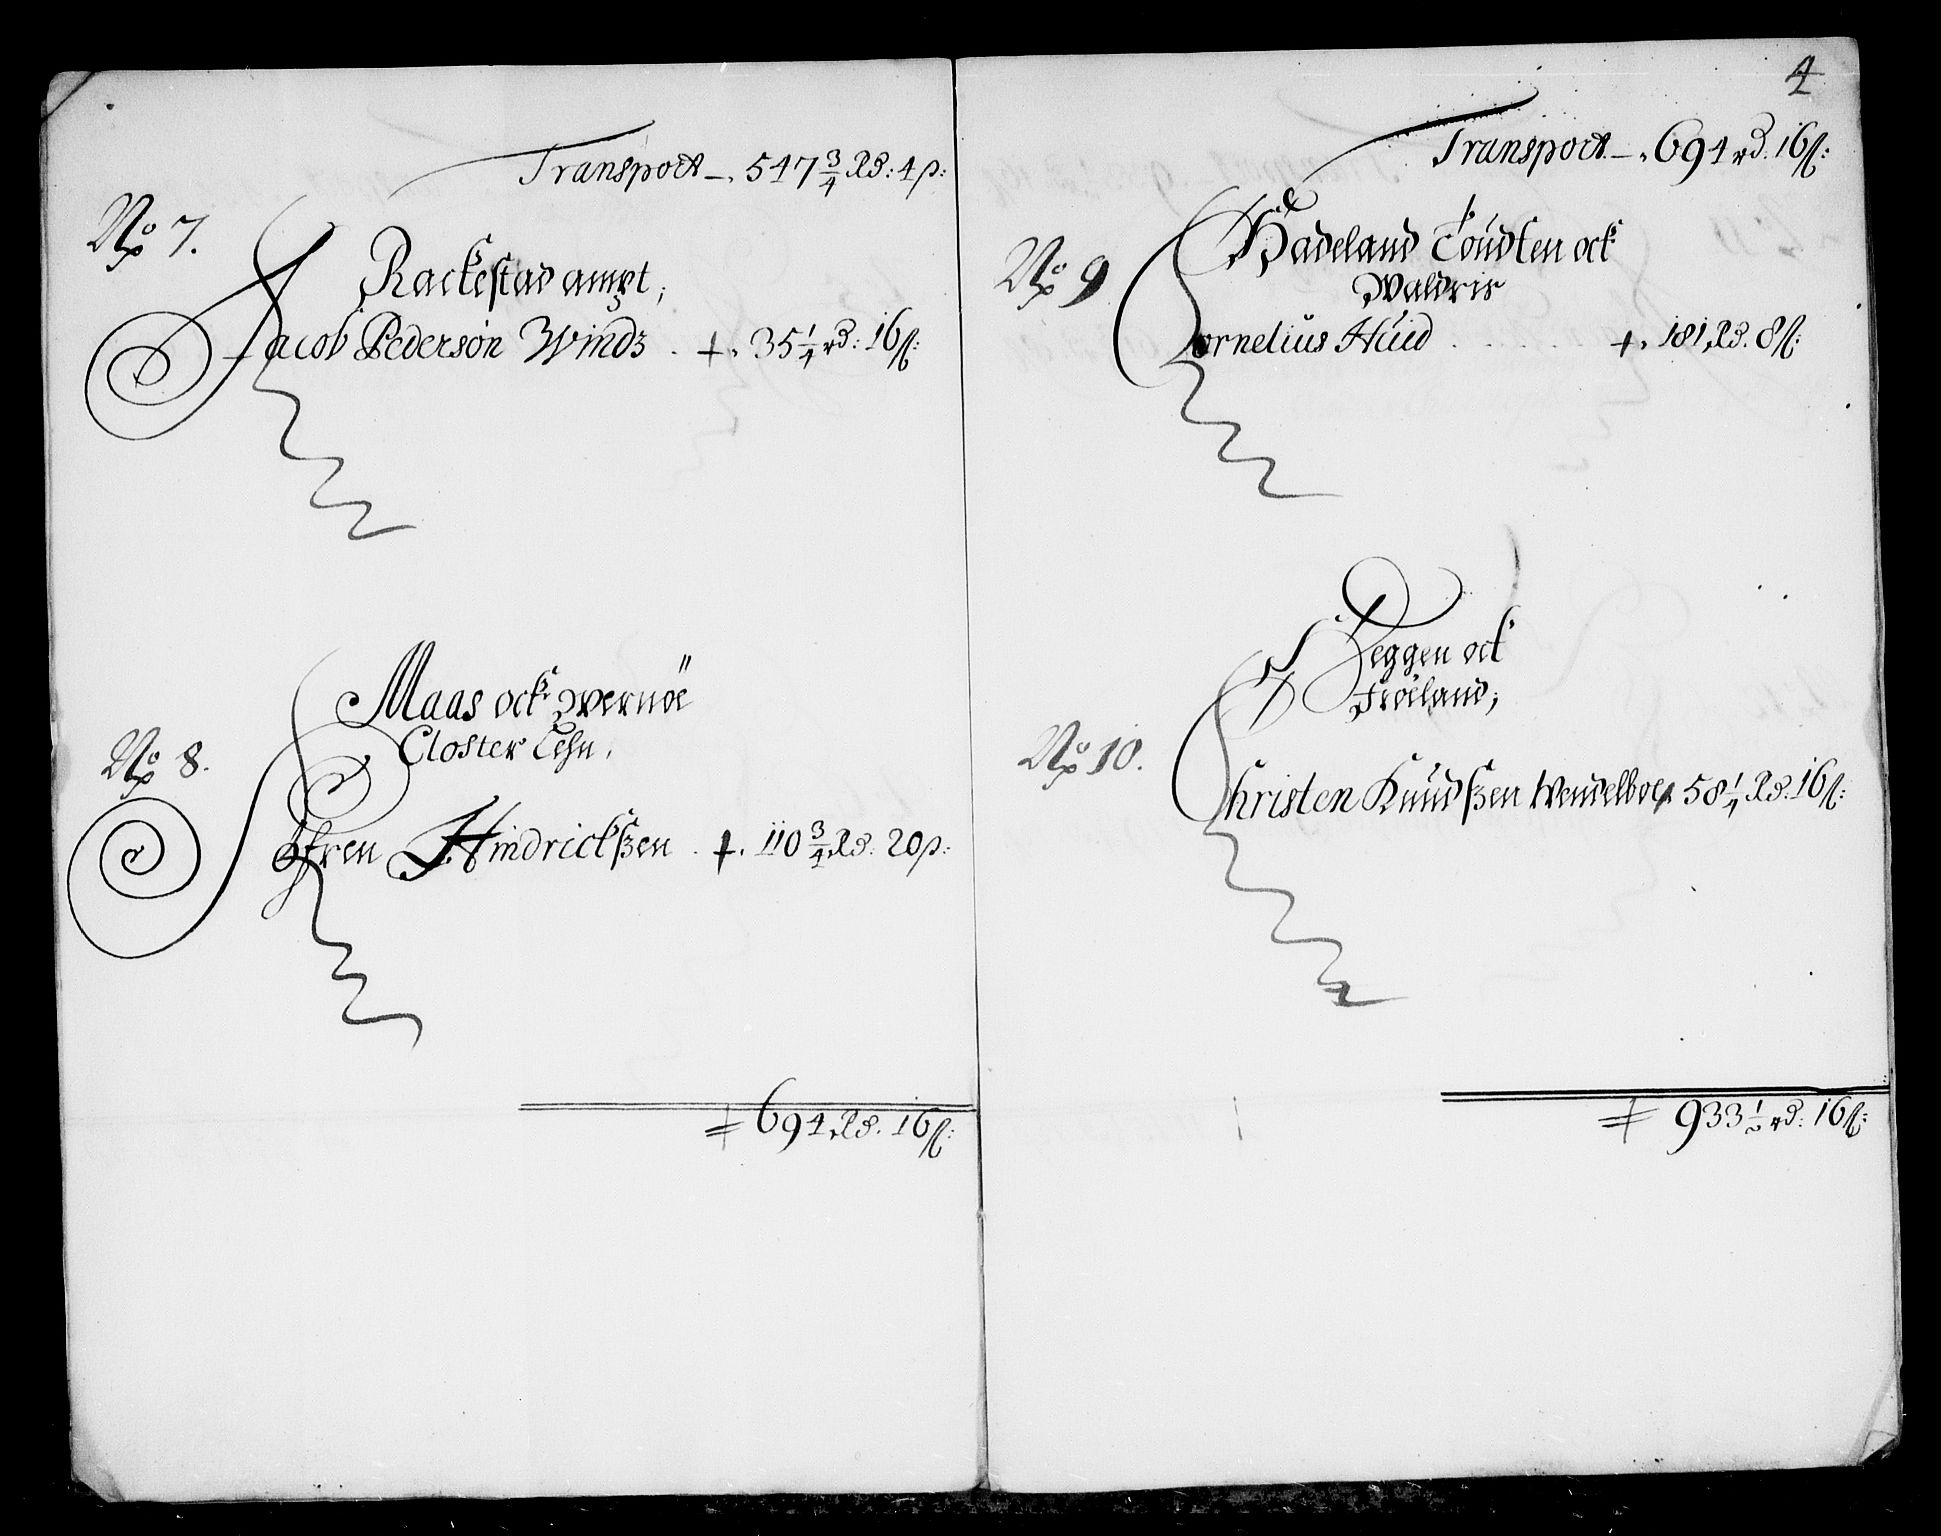 Transport — 547 3/4 Rd: 4 s:
No 7.
Rackestad ampt;
Jacob Pedersøn Windz . + . 35 1/4 rd: 16 s:
Maas ock Wernöe
Closter Lehn,
No 8.
Søfren Hindrickßen . + . 110 3/4 Rd: 20 s:
694 Rd. 16 s:
4
Transport — . 694 rd. 16 s:
Hadeland Toudten ock
No 9
Waldris
Cornelius Huid . . . . . + . 181 Rd. 8 s:
Heggen ock
Fröeland;
No 10.
Christen Knudßen Wendelboe 58 1/4 Rd. 16 s:
933 1/2 rd: 16 s: